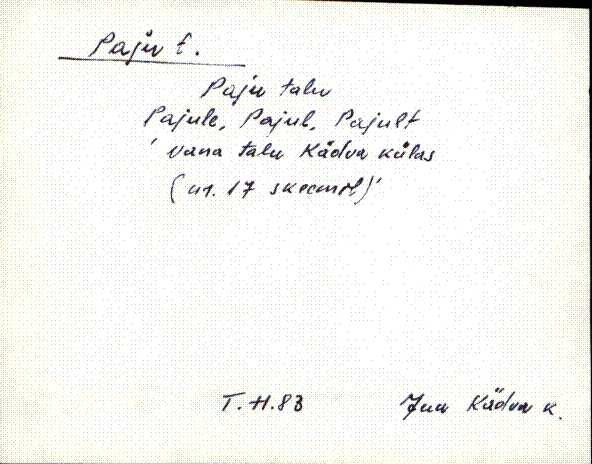 Paju t.
Paju talu
Pajule, Pajul, Pajult
'vana talu Kädva külas
(nr. 17 skeemil)'
T.H.83
Juu Kädva k.